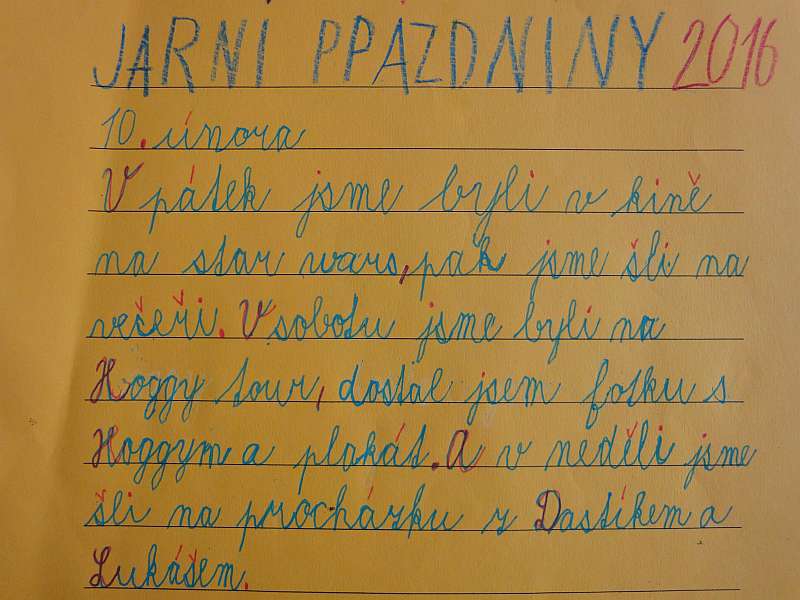 JARNI PPAZDNINY 2016
10. února
V pátek jsme byli v kině
na star wars, pak jsme šli na
večeři. V sobotu jsme byli na
Hoggy tour, dostal jsem fotku s
Hoggym a plakát. A v neděli jsme
šli na procházku z Dastíkem a
Lukášem.